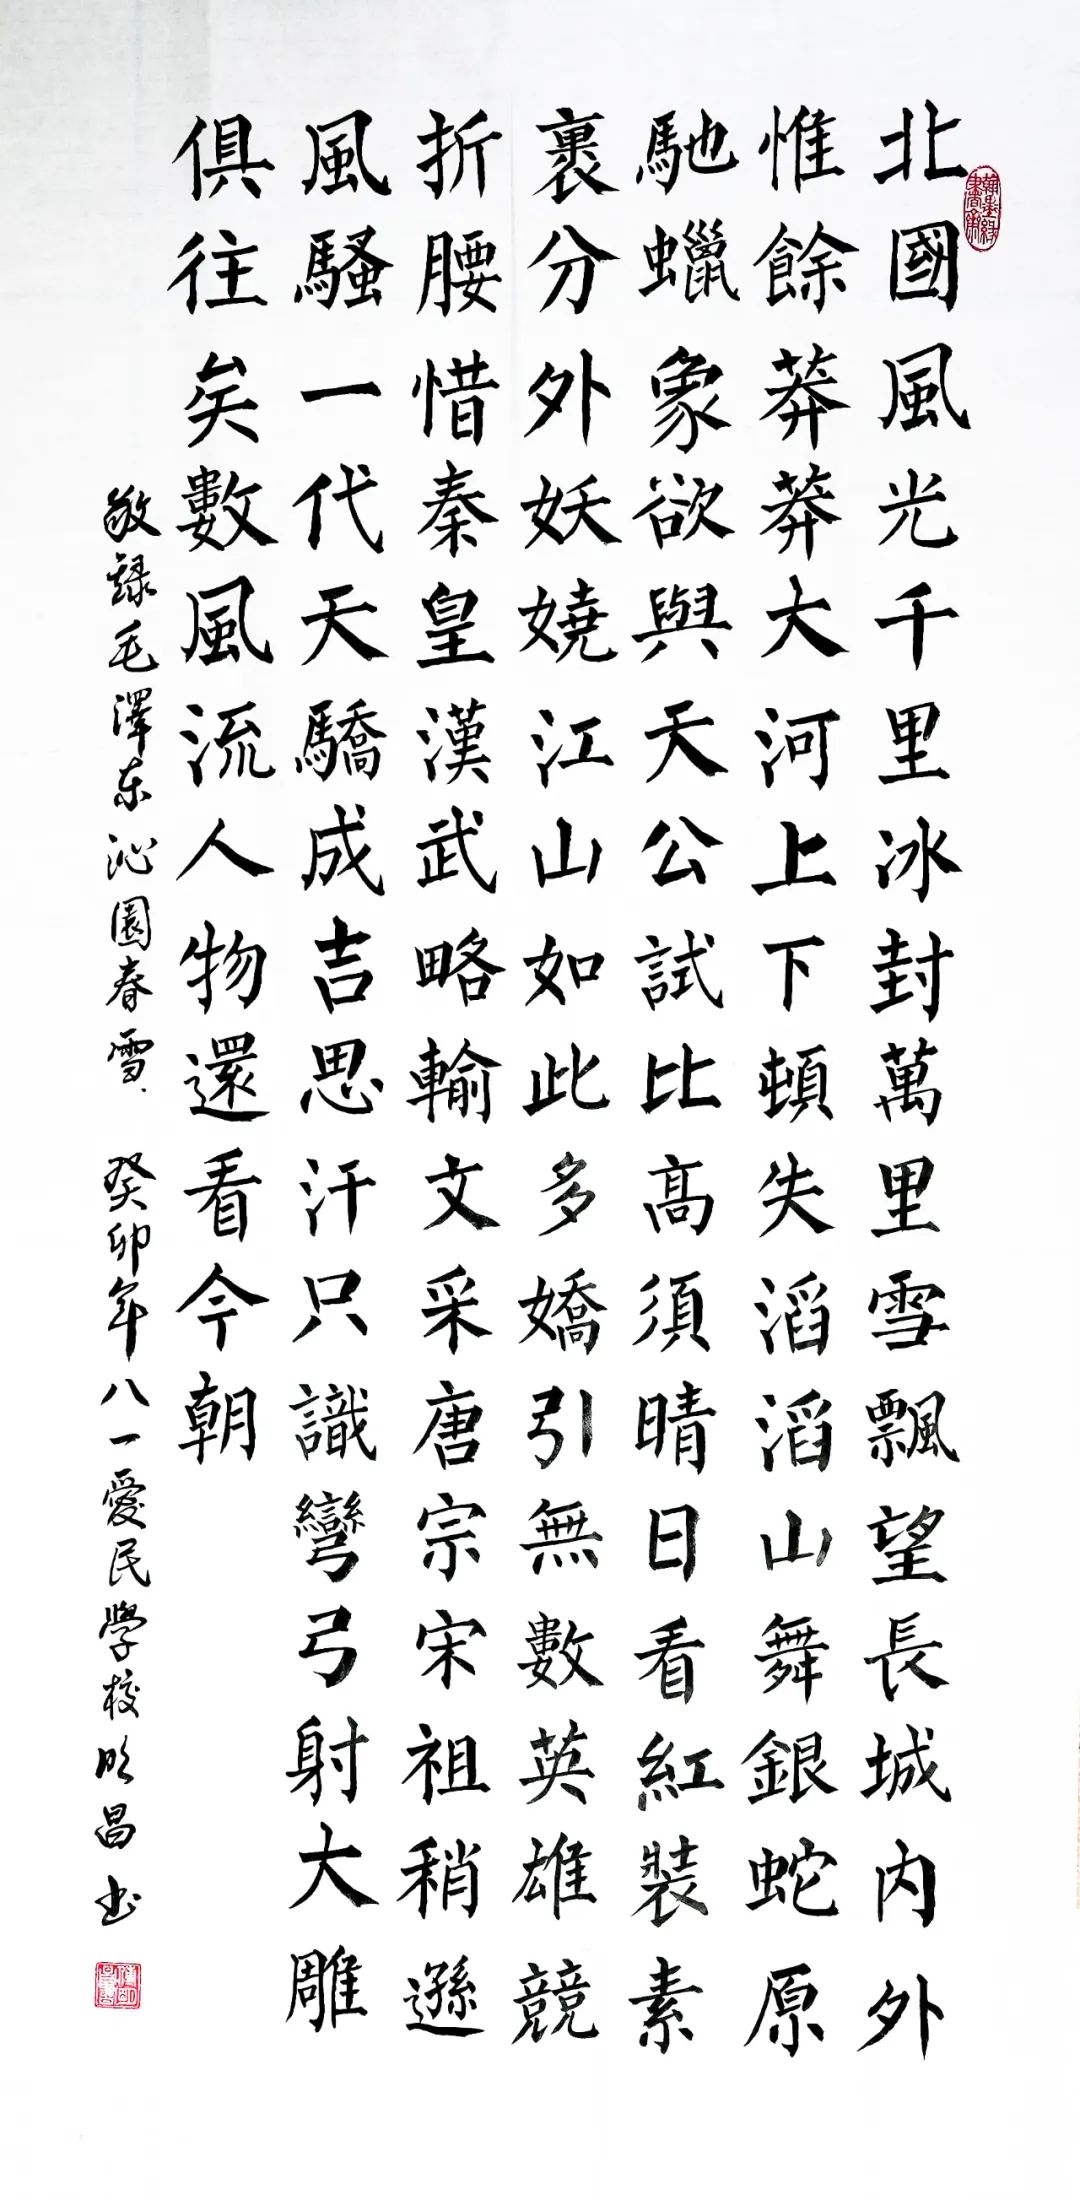 北國風光千里冰封萬里雪飄望長城內外
惟餘莽莽大河上下頓失滔滔山舞銀蛇原
馳蠟象欲與天公試比高須晴日看紅裝素
裹分外妖嬈江山如此多嬌引無數英雄競
折腰惜秦皇漢武略輸文采唐宗宋祖稍遜
風騷一代天驕成吉思汗只識彎弓射大雕
俱往矣數風流人物還看今朝
敬録毛澤东沁園春雪. 癸卯年八一愛民學校明昌书